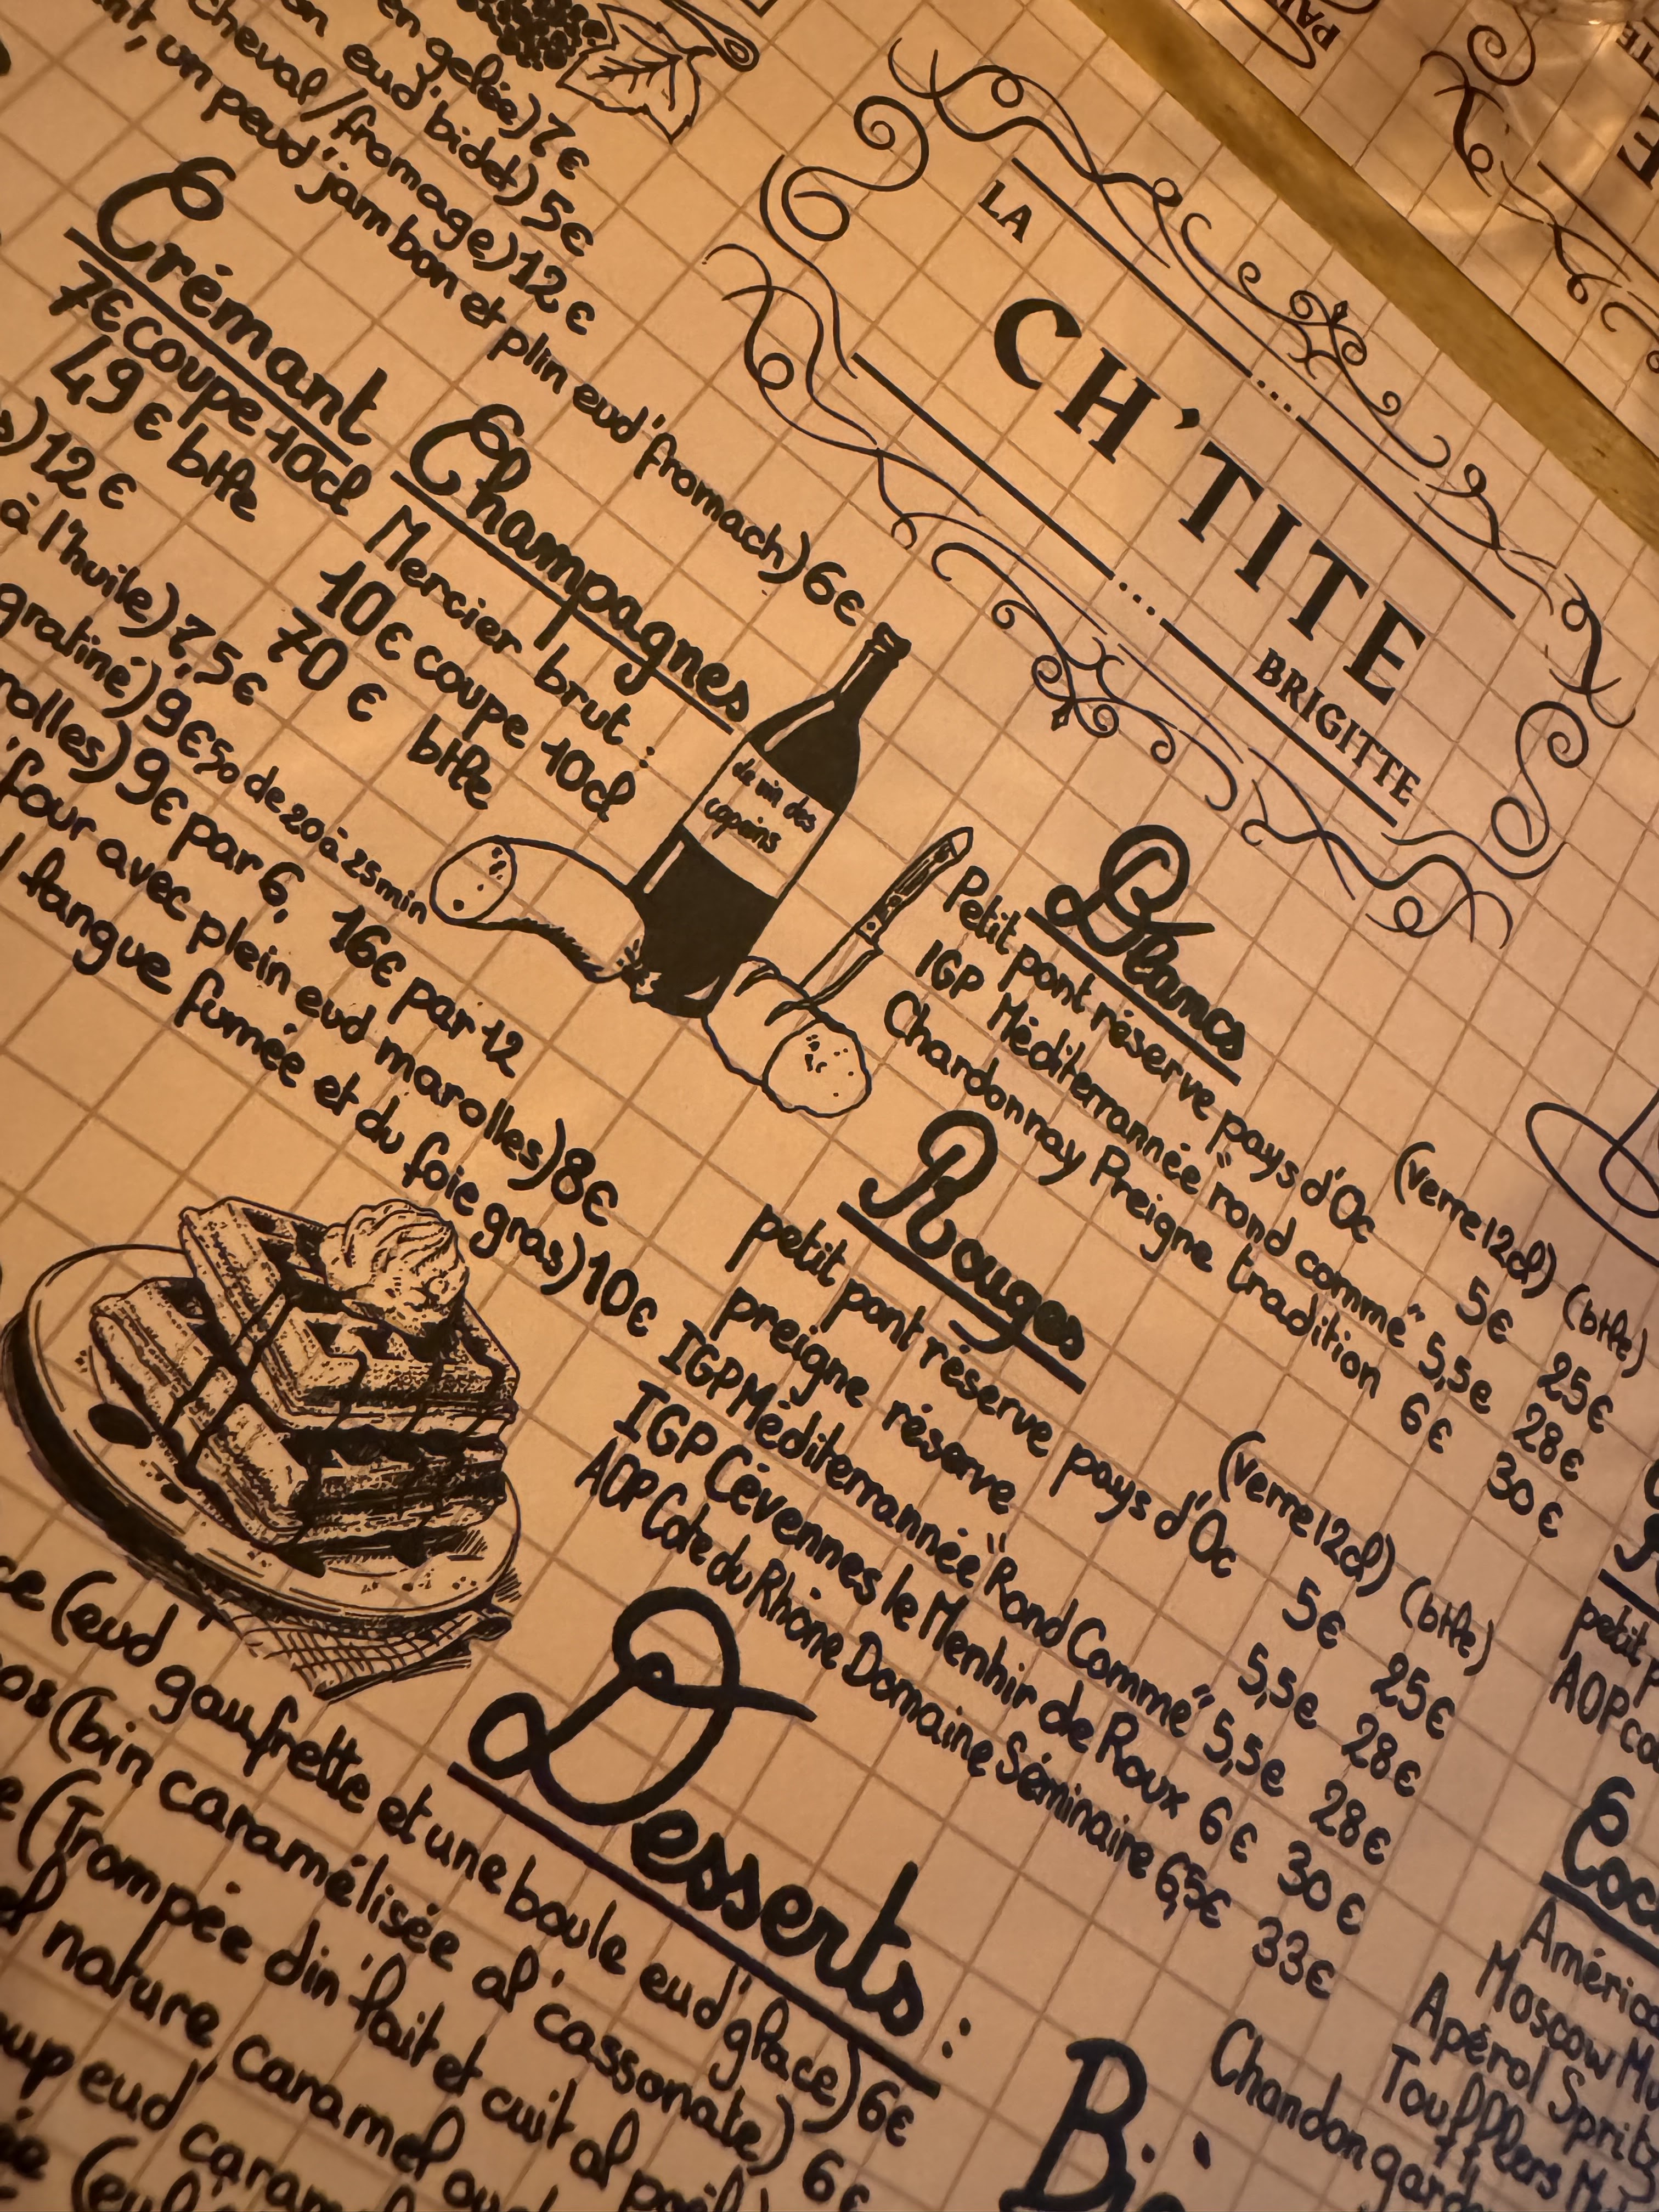 LA
CH'TITE
BRIGITTE
en gelée) 7€
eud'bidd) 5€
cheval/fromage) 12€
un peud'jambon et plin eud'fromach) 6€
Crémant
7€ coupe 10cl
49€ btlle
Champagnes
Mercier brut :
10€ coupe 10cl
70€ btlle
12€
à l'huile) 7,5€
gratiné) 9€50 de 20 à 25min
9€ par 6, 16€ par 12
four avec plein eud marolles) 8€
langue fumée et du foie gras) 10€
de vin des
copains
Blancs
(verre 12cl) (btlle)
Petit pont réserve pays d'Oc 5€ 25€
IGP Méditerrannée "rond commé" 5,5€ 28€
Chardonnay Preigne tradition 6€ 30€
Rouges
(verre 12cl) (btlle)
petit pont réserve pays d'Oc 5€ 25€
preigne réserve 5,5€ 28€
IGP Méditerrannée "Rond Commé" 5,5€ 28€
IGP Cévennes le Menhir de Roux 6€ 30€
AOP Cote du Rhône Domaine Séminaire 6,5€ 33€
Desserts :
(eud gaufrette et une boule eud'glace) 6€
(bin caramélisée al'cassonate) 6€
(Trompée din'lait et cuit al poêl
nature, caramel
eud'
petit
AOP
Moscow
Apérol Spritz
Chandon